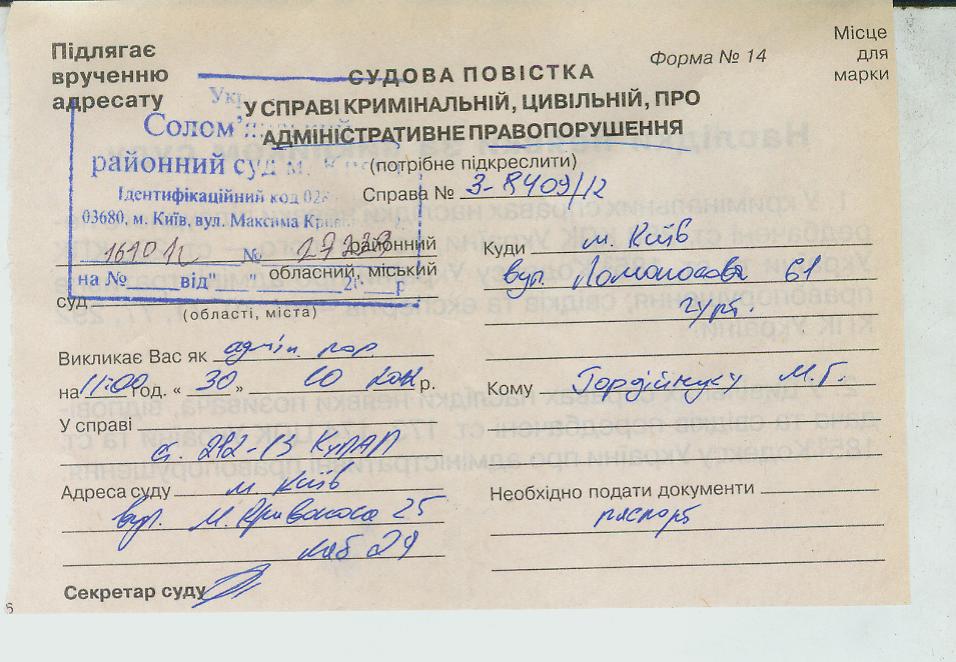 Підлягає
врученню
адресату
Форма № 14
Місце
для
марки
СУДОВА ПОВІСТКА
У СПРАВІ КРИМІНАЛЬНІЙ, ЦИВІЛЬНІЙ, ПРО
АДМІНІСТРАТИВНЕ ПРАВОПОРУШЕННЯ
(потрібне підкреслити)
Справа № 3-8409/12
Солом'
районний суд м.
Ідентифікаційний код
03680, м. Київ, вул. Максима
№ районний
на № від" " обласний, міський
суд
(області, міста)
Викликає Вас як адмін. пор
на 11:00 год. « 30 » 10 р.
У справі
ст. 212-13 КУпАП
Адреса суду м. Київ
вул. М. Кривоноса 25
каб 29
Секретар суду
Куди м. Київ
вул. Ломоносова 61
гурт.
Кому Гордійчуку М.Г.
Необхідно подати документи
паспорт
6